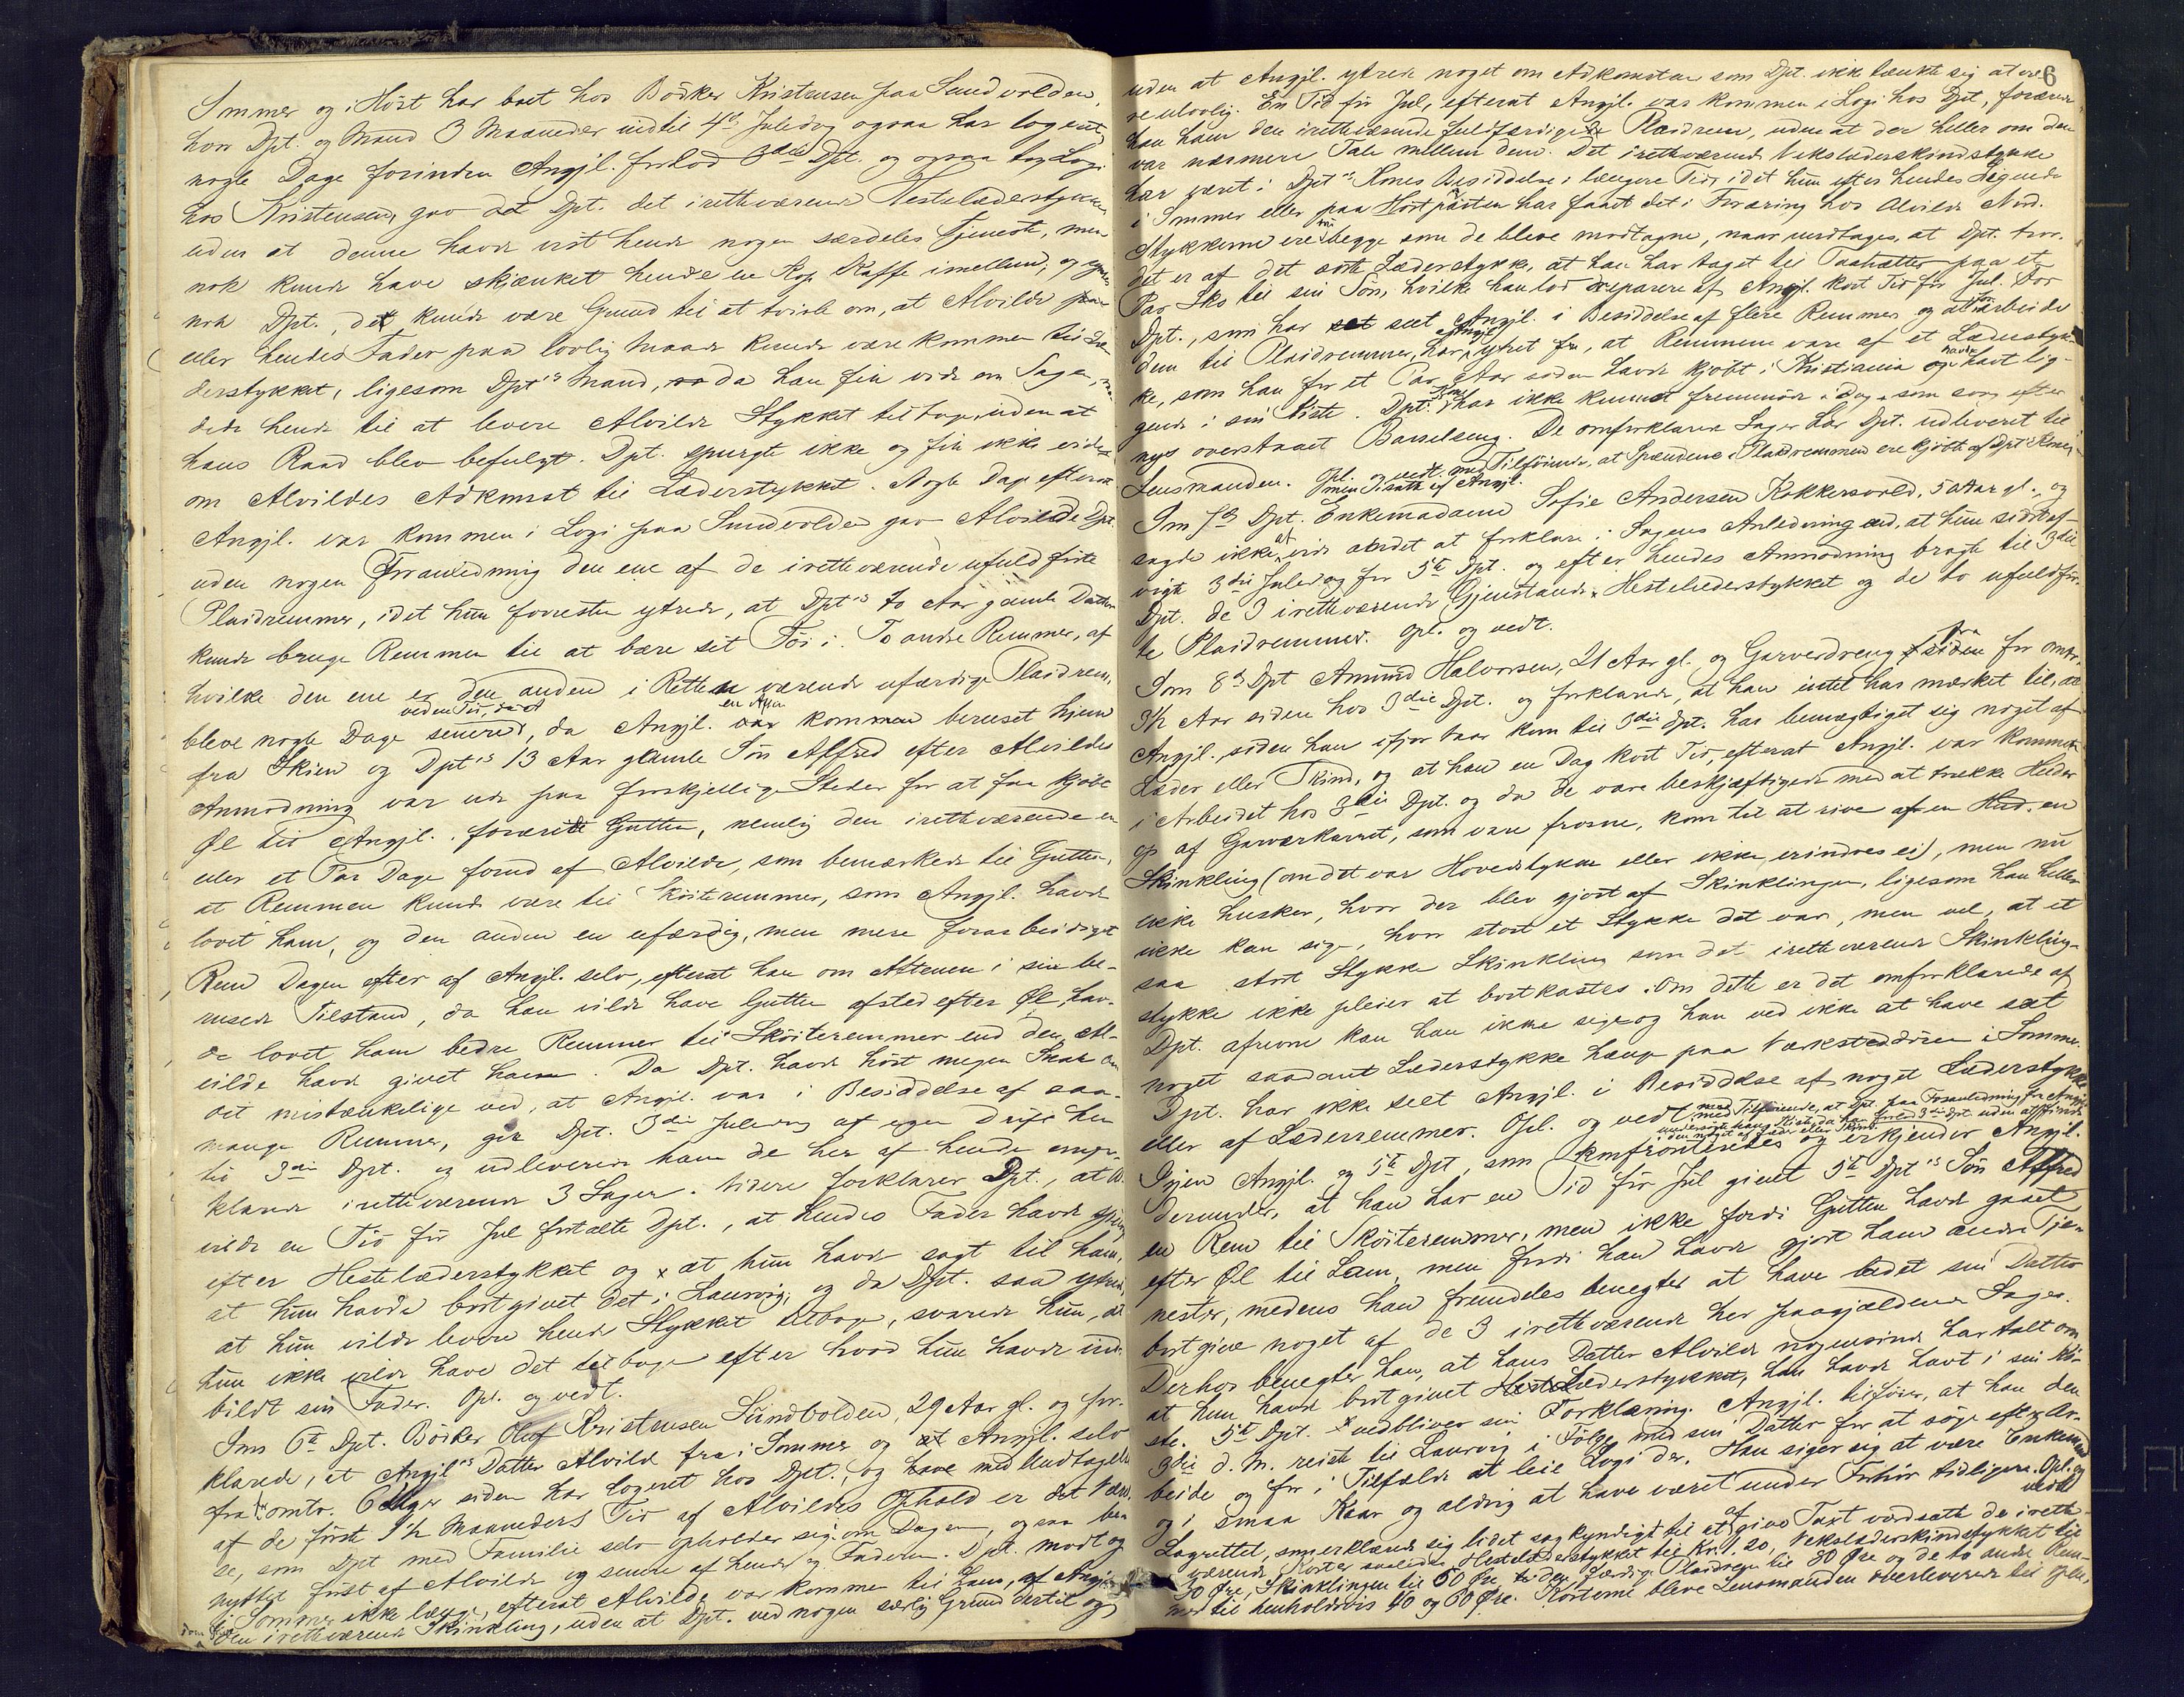 Sommer og i Höst har boet hos Bödker Kristensen paa Sundvolden,
hvor Dpt. og Mand 3 Maaneder indtil 4de Juledag ogsaa har logeret,
nogle Dage forinden Angjl. forlod 3die Dpt. og ogsaa tog Logi
hos Kristensen, gav det Dpt. det iretteværende Hestelæderstykke,
uden at denne havde vist hende nogen særdeles Tjeneste, men
nok kunde have skjænket hende en Kop Kaffe imellem; og synes
nok Dpt., det kunde være Grund til at tvivle om, at Alvilde
eller hendes Fader paa lovlig Maade kunde være kommen til Læ-
derstykket, ligesom Dpts Mand, da han fik vide om Sagen,
dede hende til at levere Alvilde Stykket tilbage, uden at
hans Raad blev befulgt. Dpt. spurgte ikke og fik ikke vide
om Alvildes Adkomst til Læderstykket. Nogle Dage efterat
Angjl. var kommen i Logi paa Sundvolden gav Alvilde Dpt.
uden nogen Foranledning den ene af de iretteværende ufuldførte
Plaidremmer, idet hun forresten ytrede, at Dpts to Aar gamle Datter
kunde bruge Remmen til at bære sit Töi i. To andre Remmer, af
hvilke den ene er den anden i Retten værende ufærdige Plaidrem,
bleve nogle Dage senere, ved en Tid, da Angjl. en Aften var kommen beruset hjem
fra Skien og Dpts 13 Aar gamle Sön Alfred efter Alvildes
Anmodning var ude paa forskjellige Steder for at faa kjöbt
Öl til Angjl., forærede Gutten, nemlig den iretteværende en
eller et Par Dage forud af Alvilde, som bemærkede til Gutten,
at Remmen kunde være til Sköiteremmer, som Angjl. havde
lovet ham, og den anden en ufærdig, men mere forarbeidiget
Rem Dagen efter af Angjl. selv, efterat han om Aftenen i sin be-
rusede Tilstand, da han vilde have Gutten afsted efter Öl, hav-
de lovet ham bedre Remmer til Sköiteremmer end den, Al-
vilde havde givet ham. Da Dpt. havde hört megen Snak om
det mistænkelige ved, at Angjl. var i Besiddelse af saa
mange Remmer, gik Dpt. 3die Juledag af egen Drift hen
til 3die Dpt. og udleverede ham de her af hende omfor-
klarede iretteværende 3 Sager. Videre forklarer Dpt., at Al-
vilde en Tid för Jul fortalte Dpt., at hendes Fader havde spurgt
efter Hestelæderstykket og at hun havde sagt til ham,
at hun havde bortgivet det i Laurvig, og da Dpt. saa ytrede,
at hun vilde levere hende Stykket tilbage, svarede hun, at
hun ikke vilde have det tilbage efter hvad hun havde ind-
bildt sin Fader. Opl. og vedt.
Som 6te Dpt. Böiker Olaf Kristensen Sundvolden, 29 Aar gl. og for-
klarede, at Angjls Datter Alvilde fra i Sommer og Angjl. selv
fra omtr. 6 Uger siden har logeret hos Dpt., og have med Undtagelse
af de förste 1½ Maaneders Tid af Alvildes Ophold er det Værel-
se, som Dpt med Familie selv opholder sig i om Dagen, ogsaa be-
nyttet först af Alvilde og senere af hende og Faderen. Dpt. modtog
i Sommer ikke længe, efterat Alvilde var kommen til ham, af Angjl.
den iretteværende Skinkling, uden at Dpt. ved nogen særlig Grund dertil og
6
uden at Angjl. ytrede noget om Adkomsten som Dpt. ikke tænkte sig at væ-
re ulovlig. En Tid för Jul, efterat Angjl. var kommen i Logi hos Dpt, forærede
han ham den iretteværende fuldfærdige Plaidrem, uden at der heller om den
var nærmere Tale mellem dem. Det iretteværende Vekslæderskindstykke
har været i Dpts Kones Besiddelse i længere Tid, idet hun efter hendes Sigende
i Sommer eller paa Höstparten har faaet det i Foræring hos Alvilde Nord.
Stykkerne ere nu begge som de bleve modtagne, naar undtages, at Dpt. tror,
det er af det sorte Læderstykke, at han har taget til Taahætter paa et
Par Sko til sin Sön, hvilke han lod reparere af Angjl. kort Tid för Jul. For
Dpt., som har seet Angjl. i Besiddelse af flere Remmer og at forarbeide
dem til Plaidremmer, har Angjl. ytret for, at Remmene vare af et Læderstyk-
ke, som han for et Par Aar siden havde kjöbt i Kristiania og havde havt lig-
gende i sin Kiste. Dpts Kone har ikke kunnet fremmöde i Dag som svag efter
nys overstaaet Barselseng. De omforklarede Sager har Dpt. udleveret til
Lensmanden. Opl. og vedt. med Tilföiende, at Spænderne i Plaidremmen ere kjöbte af Dpts Kone,
men Tilsatte af Angjl.
Som 7de Dpt. Enkemadame Sofie Andersen Kokkersvold, 50 Aar gl., og
sagde ikke at vide andet at forklare i Sagens Anledning end, at hun sidstaf-
vigte 3die Juledag for 5te Dpt. og efter hendes Anmodning bragte til 3die
Dpt. de 3 iretteværende Gjenstande, Hestelæderstykket og de to ufuldför-
te Plaidremmer. Opl. og vedt.
Som 8de Dpt Amund Halvorsen, 21 Aar gl. og Garverdreng fra for omtr.
3½ Aar siden hos 3die Dpt. og forklarede, at han intet har mærket til, at
Angjl., siden han ifjor Vaar kom til 3die Dpt. har bemægtiget sig noget af
Læder eller Skind, og at han en Dag kort Tid, efterat Angjl. var kommen
i Arbeidet hos 3die Dpt. og da de vare beskjæftigede med at trække Huder
op af Garvarkarret, som vare frosne, kom til at rive af en Hud en
Skinkling (om det var Hovedstykke eller ikke, erindres ei), men nu
ikke husker, hvor der blev gjort af Skinklingen, ligesom han heller
ikke kan sige, hvor stort et Stykke det var, men vel, at et
saa stort Stykke Skinkling som det iretteværende Skinkling-
stykke ikke pleier at bortkastes. Om dette er det omforklarede af
Dpt. afrevne kan han ikke sige og han ved ikke at have seet
noget saadant Læderstykke hænge paa Værkstaddören i Sommer.
Dpt. har ikke seet Angjl. i Besiddelse af noget Læderstykke
eller af Læderremmer. Opl. og vedt med Tilföiende, at Dpt. paa Foranledning for Angjl.
undersögte hans Kiste, da han forlod 3die Dpt uden at finde
i den noget af Læder eller Skind.
Igjen Angjl. og 5te Dpt, som konfronteredes og erkjender Angjl.
derunder, at han har en Tid för Jul givet 5te Dpts Sön Alfred
en Rem til Sköiteremmer, men ikke fordi Gutten havde gaaet
efter Öl til ham, men fordi han havde gjort ham andre Tje-
nester, medens han fremdeles benegter at have ladet sin Datter
bortgive noget af de 3 iretteværende her paagjældende Sager.
Derhos benegter han, at hans Datter Alvilde nogensinde har talt om
at hun havde bortgivet Læderstykket, han havde havt i sin Ki-
ste. 5te Dpt. vedbliver sin Forklaring. Angjl. tilföier, at han den
3die d. M. reiste til Laurvig i Fölge med sin Datter for at söge efter Ar-
beide og for i Tilfælde at leie Logi der. Han siger sig at være Enkemand
og i smaa Kaar og aldrig at have været under Forhör tidligere. Opl. og
vedt.
Lagrettet, som erklærede sig lidet sagkyndigt til at afgive Taxt værdsatte de irette-
værende Koster saaledes: Hestelæderstykket til Kr. 1.20, Vekslæderskindstykket til
30 Öre, Skinklingen til 60 Öre, den færdige Plaidrem til 80 Öre og de to andre Rem-
mer til henholdsvis 40 og 60 Öre. Kosterne bleve Lensmanden overleverede til